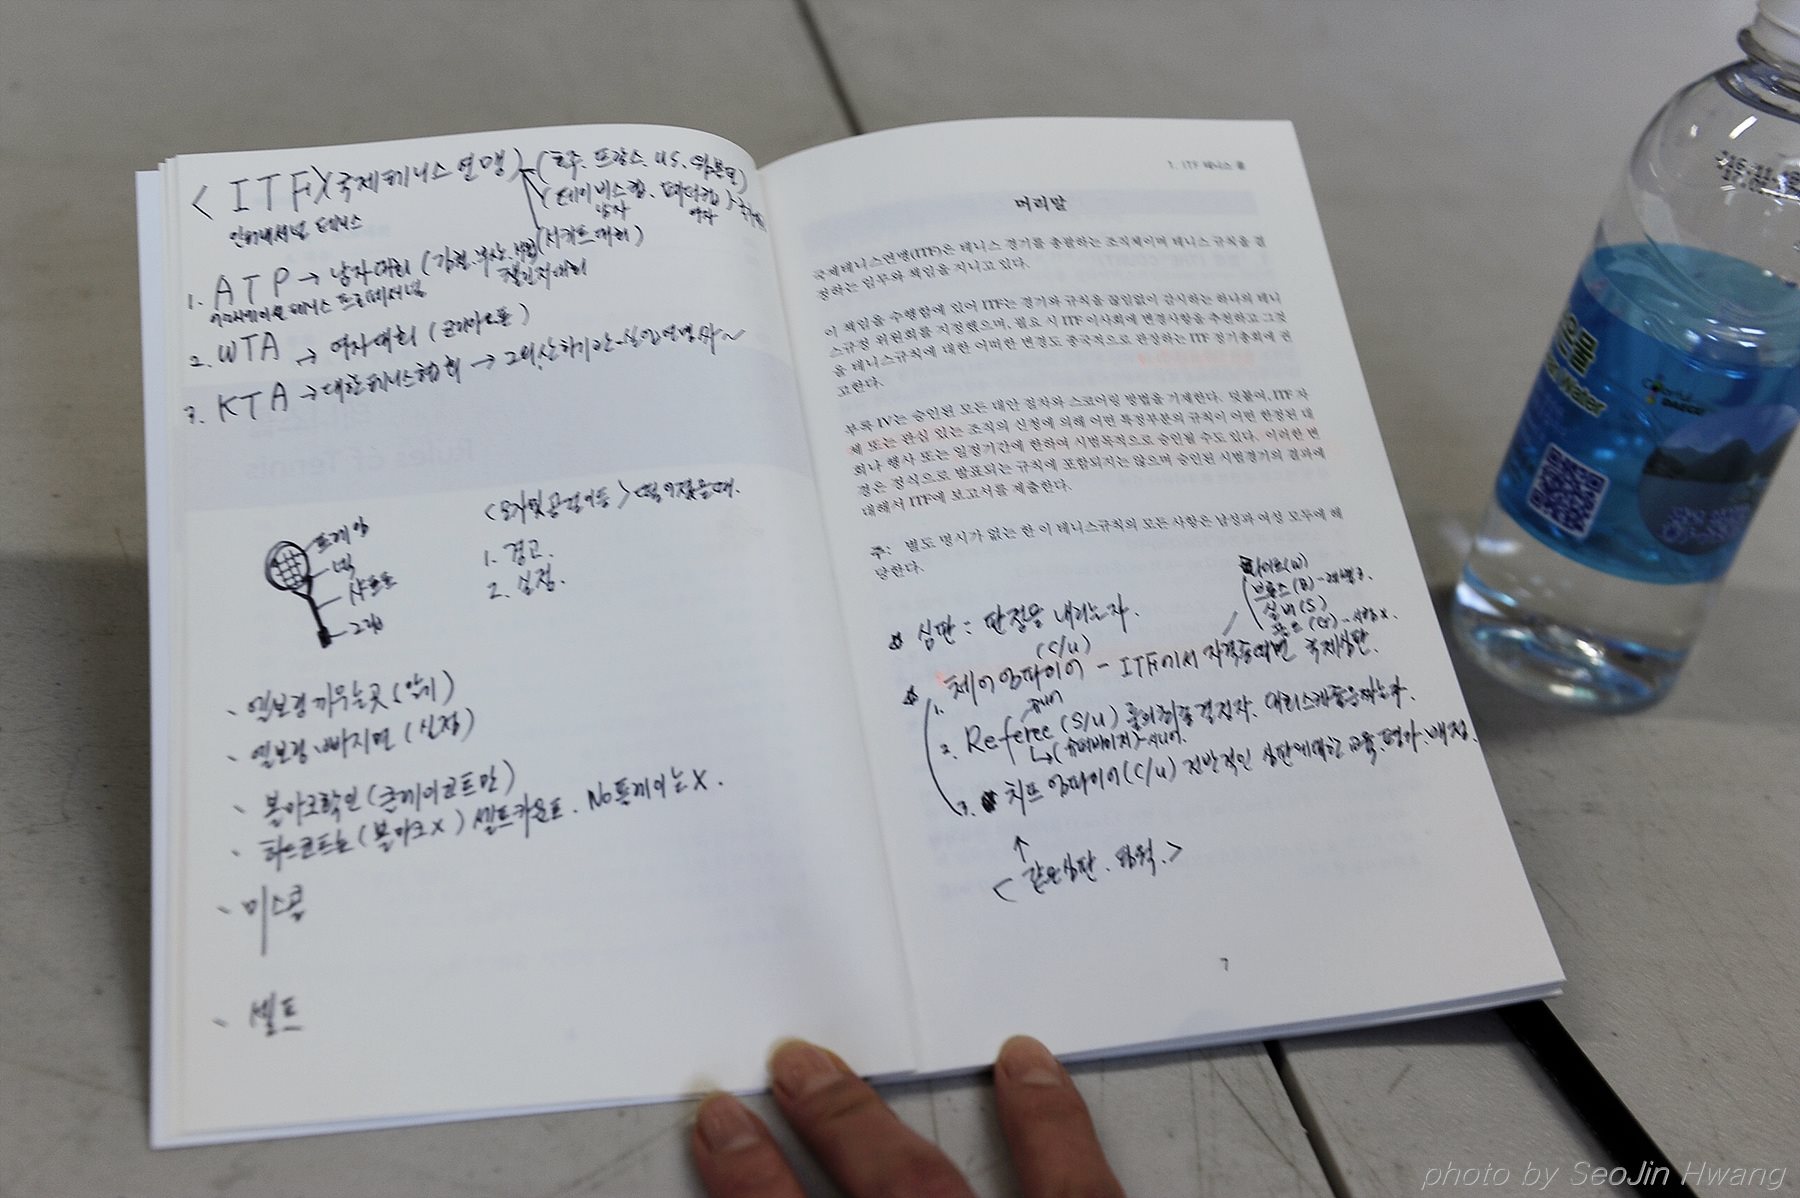 < ITF > (국제테니스연맹) (호주. 프랑스. US. 윔블던)
(데이비스컵. 페더컵)
남자 여자
인터내셔널 테니스
(서키트대회)
1. ATP → 남자대회 (김천. 부산. 서울)
챌린저대회
어소시에이션 테니스 프로페셔널
2. WTA → 여자대회 (코리아오픈)
3. KTA → 대한테니스협회 →
Rules of Tennis
프레임
넥
샤프트
그립
떨어졌을때.
1. 경고.
2. 실점.
- 엘보링 끼우는곳 (앞기)
- 엘보링 빠지면 (실점)
- 볼마크확인 (클레이코트만)
- 하드코트는 (볼마크X) 셀프카운트. No플레이는 X.
- 미스콜
- 셀프
1. ITF 테니스 룰
머리말
국제테니스연맹(ITF)은 테니스 경기를 총괄하는 조직체이며 테니스 규칙을 결
정하는 임무와 책임을 지니고 있다.
이 책임을 수행함에 있어 ITF는 경기와 규칙을 끊임없이 감시하는 하나의 테니
스규정 위원회를 지정했으며, 필요 시 ITF 이사회에 변경사항을 추천하고 그것
을 테니스규칙에 대한 어떠한 변경도 종국적으로 관장하는 ITF 정기총회에 권
고한다.
부록 IV는 승인된 모든 대안 절차와 스코어링 방법을 기재한다. 덧붙여, ITF 자
체 또는 관심 있는 조직의 신청에 의해 어떤 특정부분의 규칙이 어떤 한정된 대
회나 행사 또는 일정기간에 한하여 시범목적으로 승인될 수도 있다. 이러한 변
경은 정식으로 발표되는 규칙에 포함되지는 않으며 승인된 시범경기의 결과에
대해서 ITF에 보고서를 제출한다.
주: 별도 명시가 없는 한 이 테니스규칙의 모든 사항은 남성과 여성 모두에 해
당한다.
화이트(W)
브론즈(B) - 레벨2.
실버(S)
골드(G) - 사용X.
☆ 심판 : 판정을 내리는자.
(C/U)
☆ 1. 체어엄파이어 - ITF에서 자격증여된 국제심판.
2. Referee (S/U) 룰의최종결정자.
(슈퍼바이저)
3. 치프 엄파이어(C/U) 전반적인 심판에대한 교육. 평가. 배정.
↑
< 같은심판. >
7
Colorful
DAEGU
photo by SeoJin Hwang